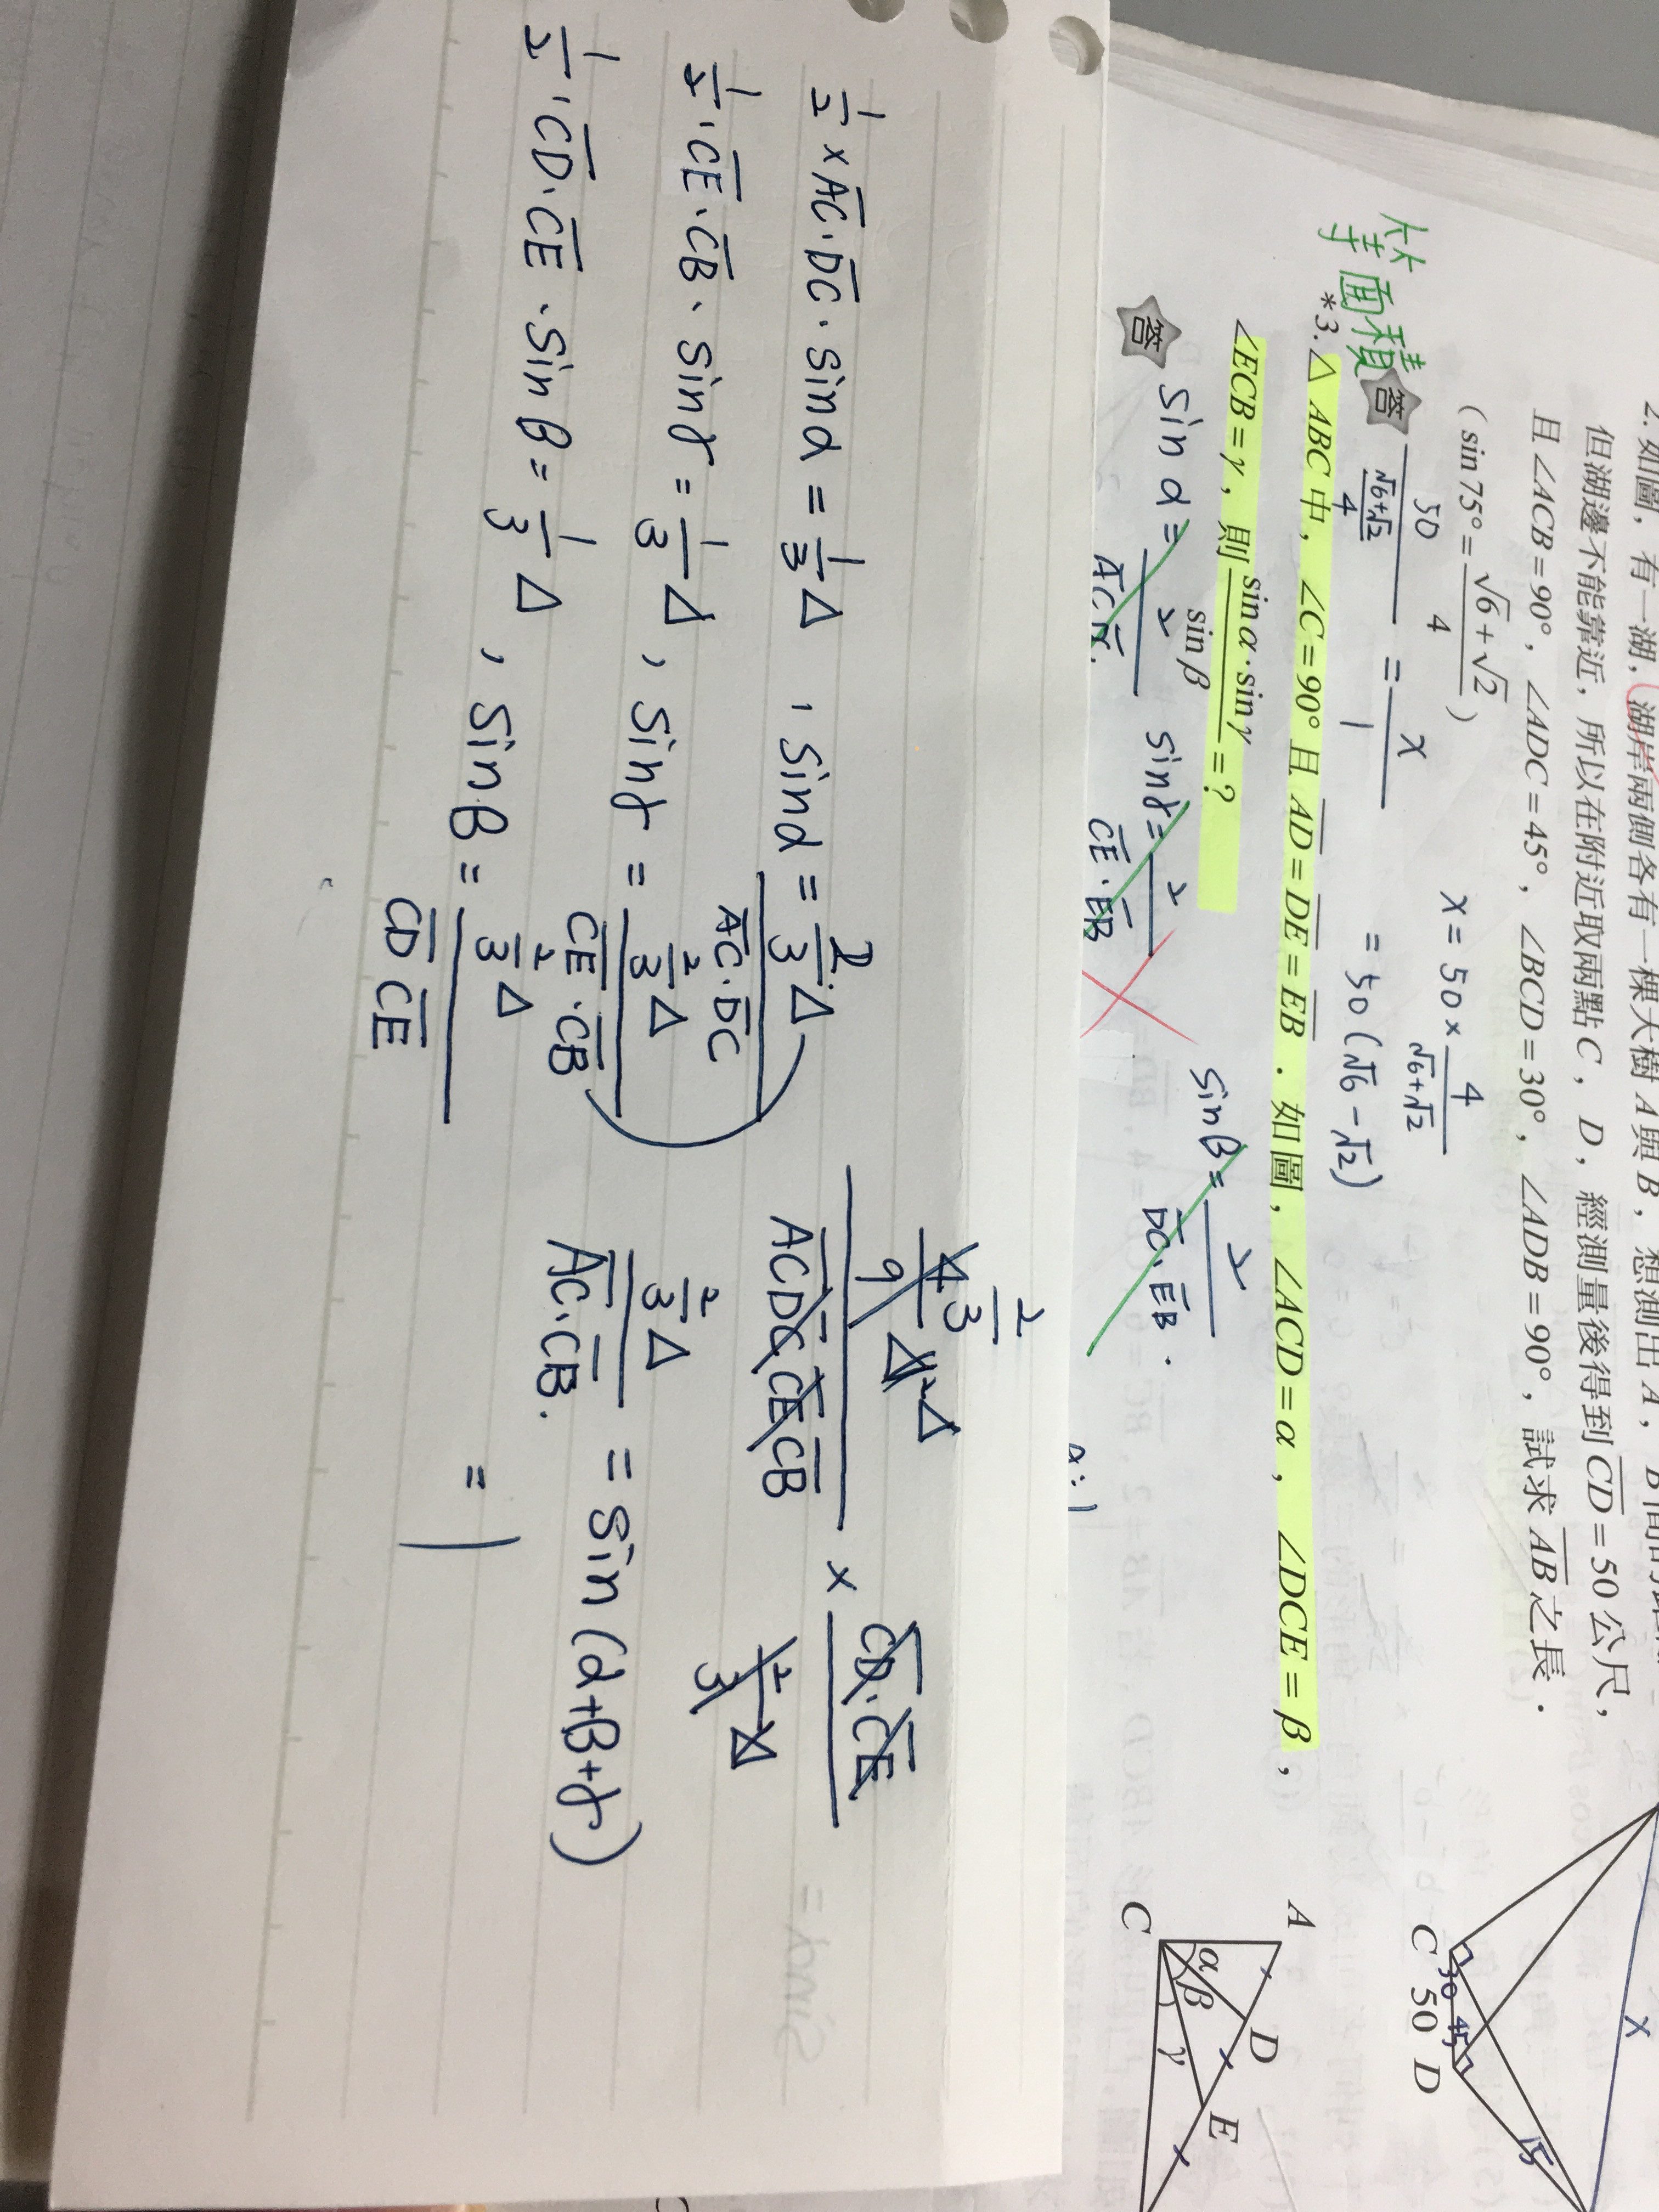 2. 如圖，有一湖，湖岸兩側各有一棵大樹 A 與 B，想測出 A，B 間的距
但湖邊不能靠近，所以在附近取兩點 C，D，經測量後得到 CD = 50 公尺，
且 ∠ACB = 90°，∠ADC = 45°，∠BCD = 30°，∠ADB = 90°，試求 AB 之長．
( sin 75° = (√6 + √2)/4 )
x
C 50 D
30 45
15
答 50/((√6+√2)/4) = x/1
x = 50 × 4/(√6+√2)
= 50 (√6 − √2)
等面積
*3. △ABC 中，∠C = 90° 且 AD = DE = EB．如圖，∠ACD = α，∠DCE = β，
∠ECB = γ，則 (sin α · sin γ)/sin β = ?
A
D
E
C
α
β
γ
答 sin α = 2/
sin γ = 2/(CE · EB)
sin β = 2/(DC · EB)
1/2 × AC · DC · sin α = 1/3 △ , sin α = (2/3 △)/(AC · DC)
1/2 · CE · CB · sin γ = 1/3 △ , sin γ = (2/3 △)/(CE · CB)
1/2 · CD · CE · sin β = 1/3 △ , sin β = (2/3 △)/(CD CE)
(4/9 △² )/(AC DC CE CB) × (CD · CE)/(2/3 △)
2/3 △
(2/3 △)/(AC · CB) = sin (α + β + γ)
= 1